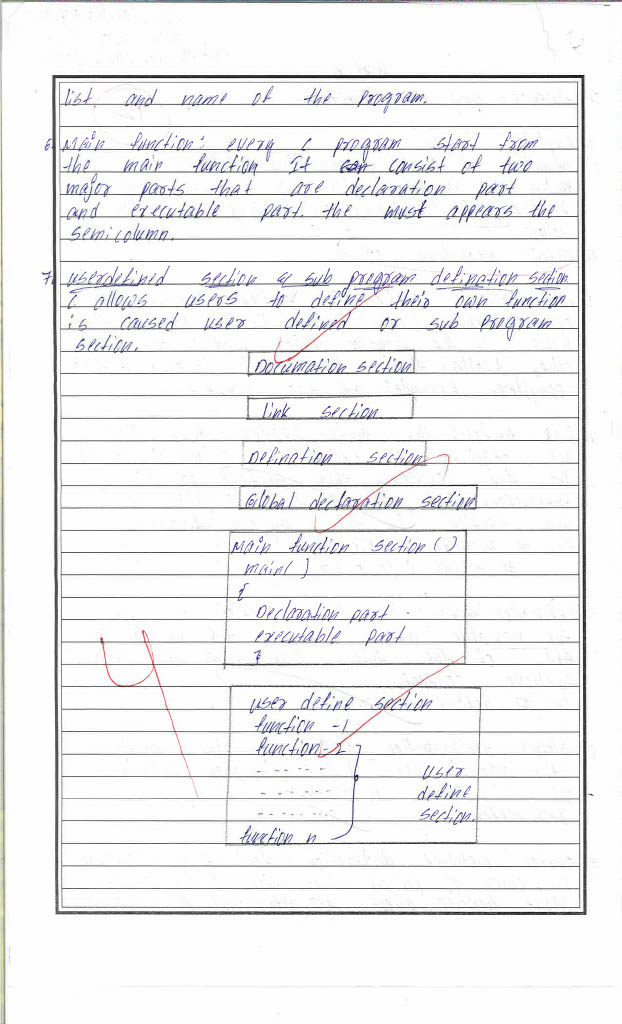 list and name of the program.
6. Main function: every C program start from
the main function It can consist of two
major parts that are declaration part
and executable part. the must appears the
semicolumn.
7. userdefined section & sub program defination section
C allows users to define their own function
is caused user defined or sub program
section.
Documation section
link section
Defination section
Global declaration section
Main function section ( )
main( )
{
Declaration part
executable part
}
user define section
function -1
function-2
- - - - - user
- - - - - define
- - - - - section.
function n
4